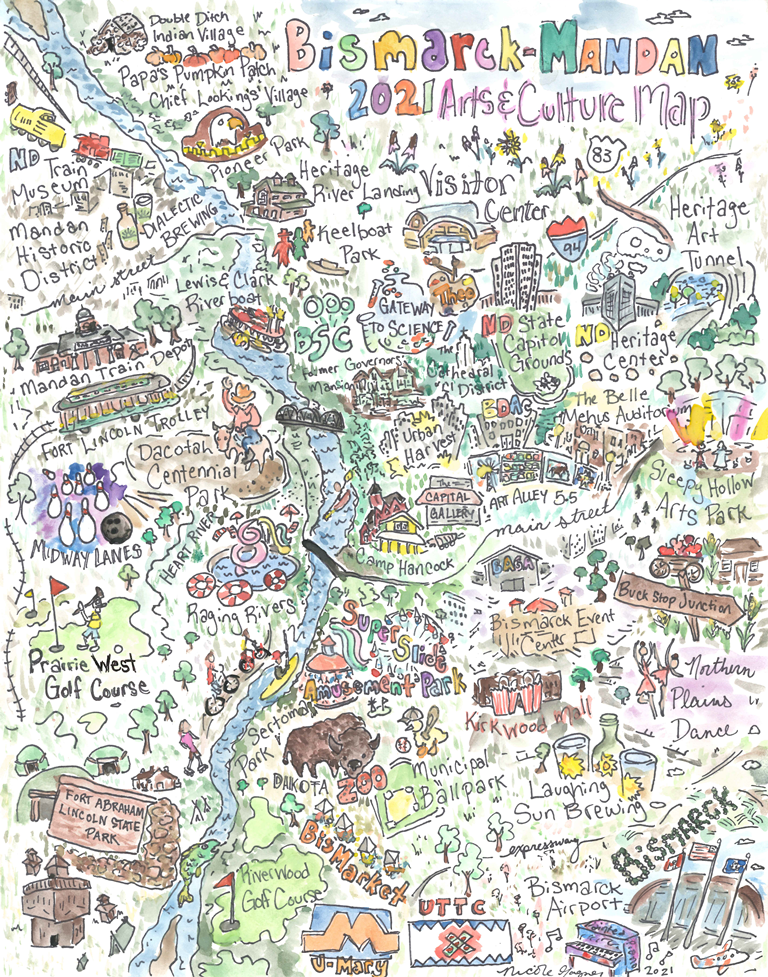 Double Ditch
Indian Village
Papa's Pumpkin Patch
Chief Looking's Village
Bismarck-Mandan
2021 Arts & Culture Map
Pioneer Park
83
ND Train
Museum
Mandan
Historic
District
DIALECTIC
BREWING
main street
Heritage
River Landing
Keelboat
Park
Visitor
Center
94
Heritage
Art
Tunnel
Lewis & Clark
Riverboat
DSC
GATEWAY
TO SCIENCE
Theo
ND State
Capitol
Grounds
ND Heritage
Center
Former Governors'
Mansion
The
Cathedral
District
Mandan Train Depot
FORT LINCOLN TROLLEY
Dacotah
Centennial
Park
Urban
Harvest
BDAC
The Belle
Mehus Auditorium
Sleepy Hollow
Arts Park
The
CAPITAL
GALLERY
ART ALLEY 5.5
main street
MIDWAY LANES
HEART RIVER
Camp Hancock
BASH
Raging Rivers
Bismarck Event
Center
Buck Stop Junction
Prairie West
Golf Course
Super Slide
Amusement Park
Kirkwood Mall
Northern
Plains
Dance
Sertoma
Park
DAKOTA ZOO
Municipal
Ballpark
Laughing
Sun Brewing
FORT ABRAHAM
LINCOLN STATE
PARK
BisMarket
expressway
BISMARCK
Bismarck
Airport
Riverwood
Golf Course
U-Mary
UTTC
2021